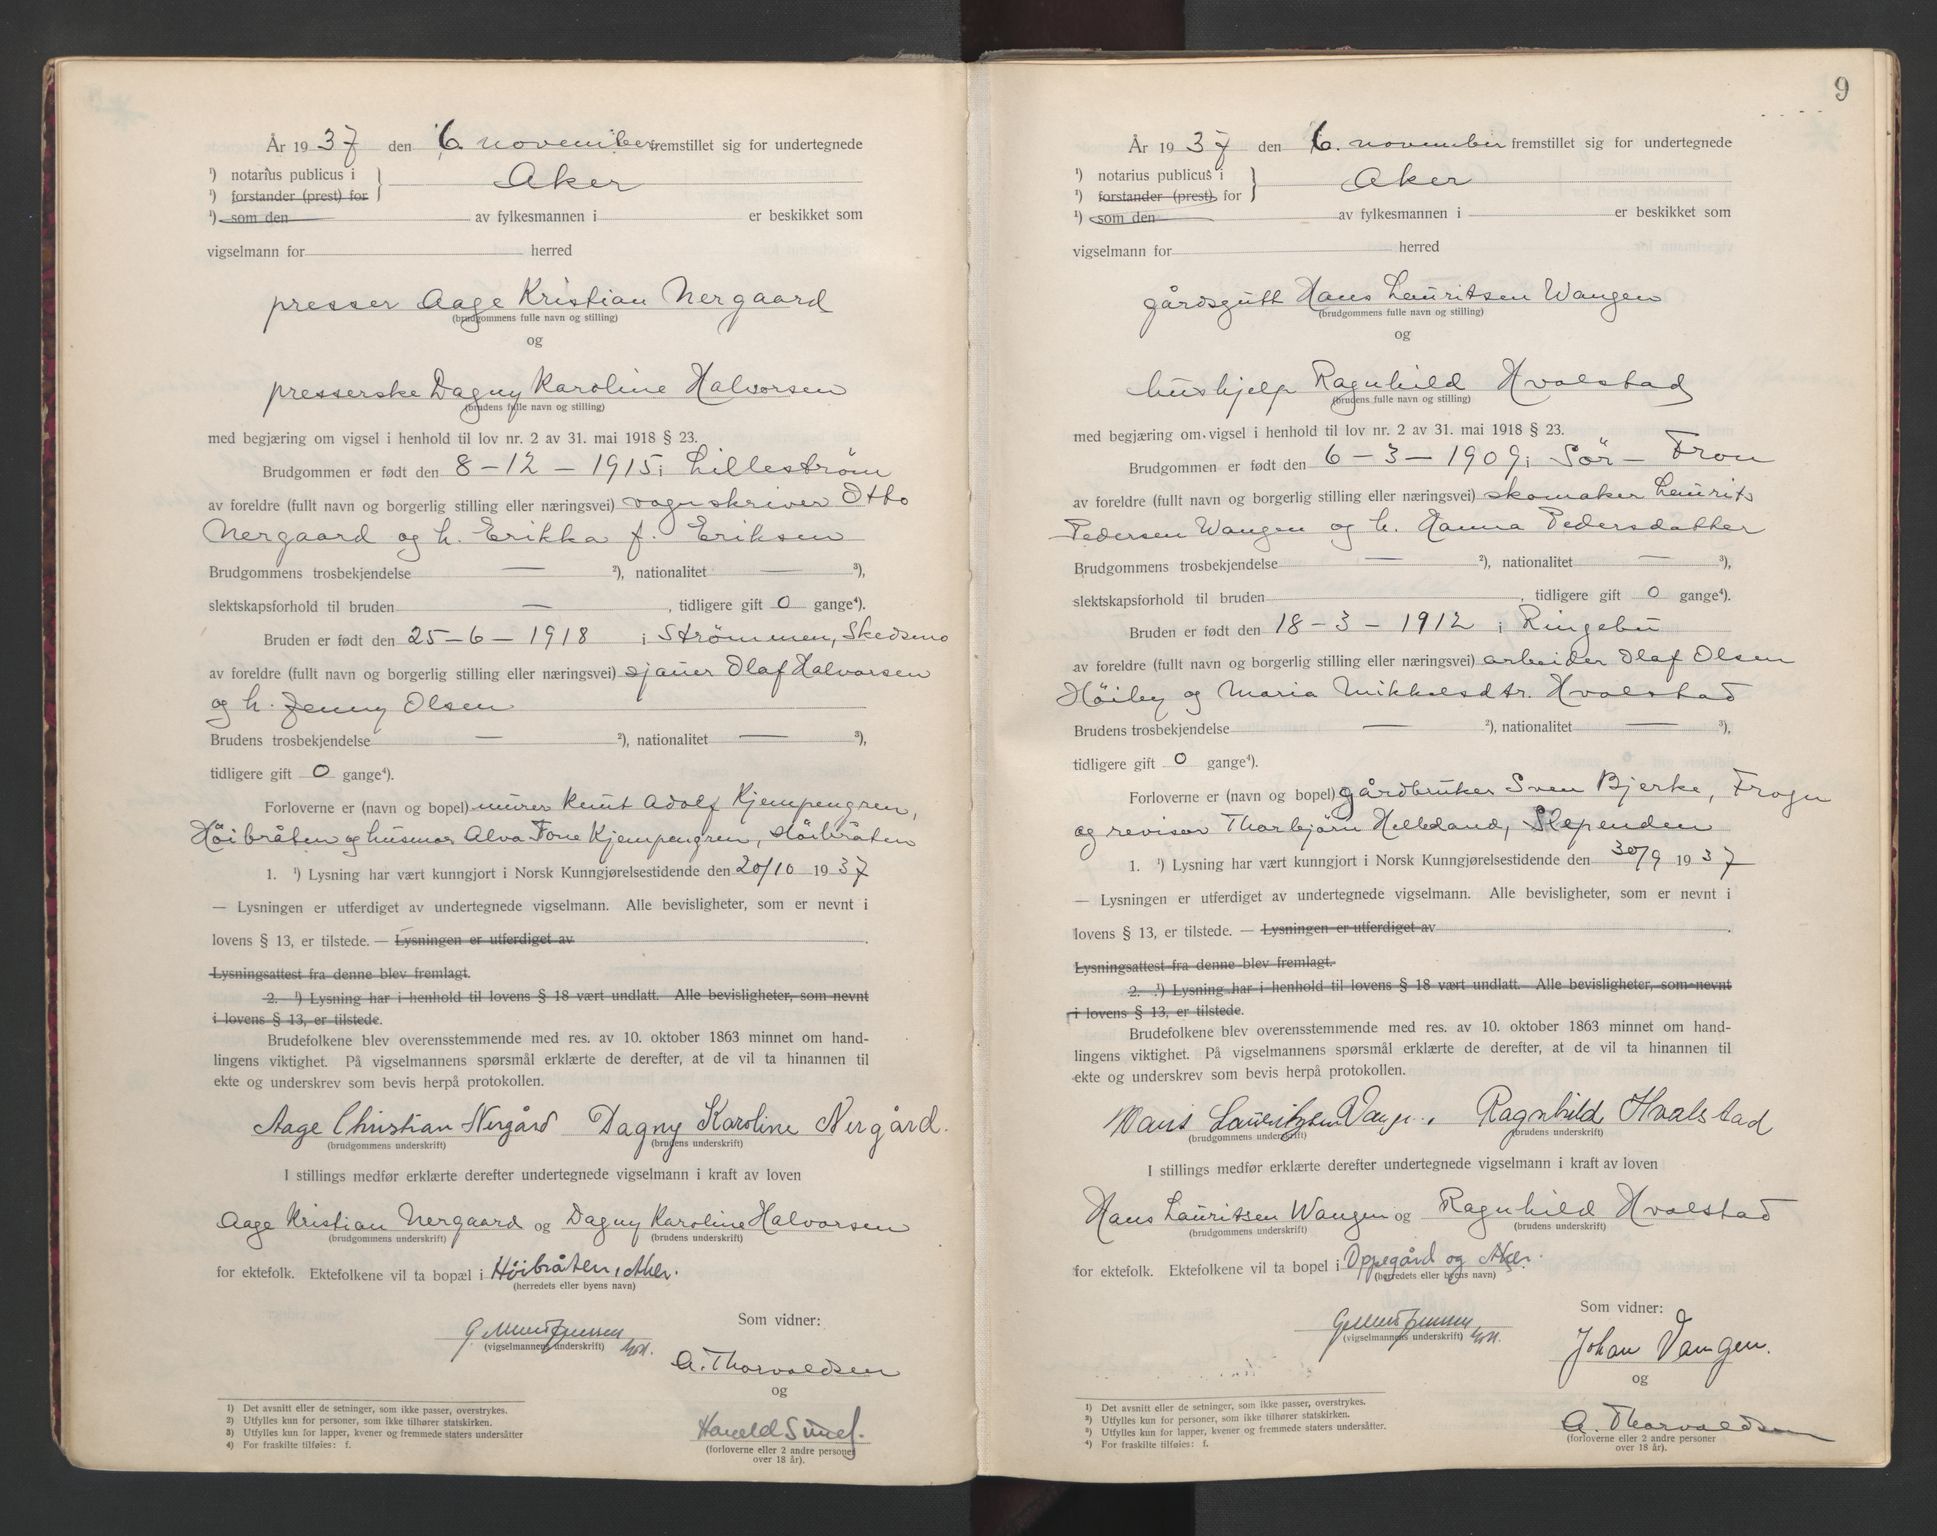 År 1937 den 6. november fremstillet sig for undertegnede
¹) notarius publicus i
Aker
¹) forstander (prest) for
¹) som den av fylkesmannen i er beskikket som
vigselmann for herred
presser Aage Kristian Nergaard
(brudgommens fulle navn og stilling)
og
presserske Dagny Karoline Halvorsen
(brudens fulle navn og stilling)
med begjæring om vigsel i henhold til lov nr. 2 av 31. mai 1918 § 23.
Brudgommen er født den 8-12-1915 i Lilleström
av foreldre (fullt navn og borgerlig stilling eller næringsvei) vognskriver Otto
Nergaard og h. Erikka f. Eriksen
Brudgommens trosbekjendelse — ²), nationalitet — ³),
slektskapsforhold til bruden — , tidligere gift 0 gange⁴).
Bruden er født den 25-6-1918 i Strömmen, Skedsmo
av foreldre (fullt navn og borgerlig stilling eller næringsvei) sjauer Olaf Halvorsen
og h. Jenny Olsen
Brudens trosbekjendelse — ²), nationalitet — ³),
tidligere gift 0 gange⁴).
Forloverne er (navn og bopel) murer Knut Adolf Kjempengren,
Höibråten og husmor Alva Tone Kjempengren, Höibråten
1. ¹) Lysning har vært kunngjort i Norsk Kunngjørelsestidende den 20/10 1937
— Lysningen er utferdiget av undertegnede vigselmann. Alle bevisligheter, som er nevnt i
lovens § 13, er tilstede. — Lysningen er utferdiget av .
Lysningsattest fra denne blev fremlagt.
2. ¹) Lysning har i henhold til lovens § 18 vært undlatt. Alle bevisligheter, som nevnt
i lovens § 13, er tilstede.
Brudefolkene blev overensstemmende med res. av 10. oktober 1863 minnet om hand-
lingens viktighet. På vigselmannens spørsmål erklærte de derefter, at de vil ta hinannen til
ekte og underskrev som bevis herpå protokollen.
Aage Christian Nergård Dagny Karoline Nergård.
(brudgommens underskrift) (brudens underskrift)
I stillings medfør erklærte derefter undertegnede vigselmann i kraft av loven
Aage Kristian Nergaard og Dagny Karoline Halvorsen
(brudgommens underskrift) (brudens underskrift)
for ektefolk. Ektefolkene vil ta bopæl i Höibråten, Aker.
(herredets eller byens navn)
Som vidner:
(vigselmannens underskrift)
A. Thorvaldsen
og
Harald
(forloverne eller 2 andre personer
over 18 år).
1) Det avsnitt eller de setninger, som ikke passer, overstrykes.
2) Utfylles kun for personer, som ikke tilhører statskirken.
3) Utfylles kun for lapper, kvener og fremmede staters undersåtter
4) For fraskilte tilføies: f.
9
År 1937 den 6. november fremstillet sig for undertegnede
¹) notarius publicus i
Aker
¹) forstander (prest) for
¹) som den av fylkesmannen i er beskikket som
vigselmann for herred
gårdsgutt Hans Lauritsen Wangen
(brudgommens fulle navn og stilling)
og
hushjelp Ragnhild Hvalstad
(brudens fulle navn og stilling)
med begjæring om vigsel i henhold til lov nr. 2 av 31. mai 1918 § 23.
Brudgommen er født den 6-3-1909 i Sör-Fron
av foreldre (fullt navn og borgerlig stilling eller næringsvei) skomaker Laurits
Pedersen Wangen og h. Hanna Pedersdatter
Brudgommens trosbekjendelse — ²), nationalitet — ³),
slektskapsforhold til bruden , tidligere gift 0 gange⁴).
Bruden er født den 18-3-1912 i Ringebu
av foreldre (fullt navn og borgerlig stilling eller næringsvei) arbeider Olaf Olsen
Höiby og Maria Mikkelsdtr. Hvalstad
Brudens trosbekjendelse — ²), nationalitet — ³),
tidligere gift 0 gange⁴).
Forloverne er (navn og bopel) gårdbruker Sven Bjerke, Frogn
og revisor Thorbjörn Helleland, Slependen
1. ¹) Lysning har vært kunngjort i Norsk Kunngjørelsestidende den 30/9 1937
— Lysningen er utferdiget av undertegnede vigselmann. Alle bevisligheter, som er nevnt i
lovens § 13, er tilstede. — Lysningen er utferdiget av .
Lysningsattest fra denne blev fremlagt.
2. ¹) Lysning har i henhold til lovens § 18 vært undlatt. Alle bevisligheter, som nevnt
i lovens § 13, er tilstede.
Brudefolkene blev overensstemmende med res. av 10. oktober 1863 minnet om hand-
lingens viktighet. På vigselmannens spørsmål erklærte de derefter, at de vil ta hinannen til
ekte og underskrev som bevis herpå protokollen.
Hans Lauritsen Vangen. Ragnhild Hvalstad
(brudgommens underskrift) (brudens underskrift)
I stillings medfør erklærte derefter undertegnede vigselmann i kraft av loven
Hans Lauritsen Wangen og Ragnhild Hvalstad
(brudgommens underskrift) (brudens underskrift)
for ektefolk. Ektefolkene vil ta bopel i Oppegård og Aker.
(herredets eller byens navn)
Som vidner:
(vigselmannens underskrift)
Johan Vangen.
og
A. Thorvaldsen
(forloverne eller 2 andre personer
over 18 år).
1) Det avsnitt eller de setninger, som ikke passer, overstrykes.
²) Utfylles kun for personer, som ikke tilhører statskirken.
³) Utfylles kun for lapper, kvener og fremmede staters undersåtter.
⁴) For fraskilte tilføies: f.